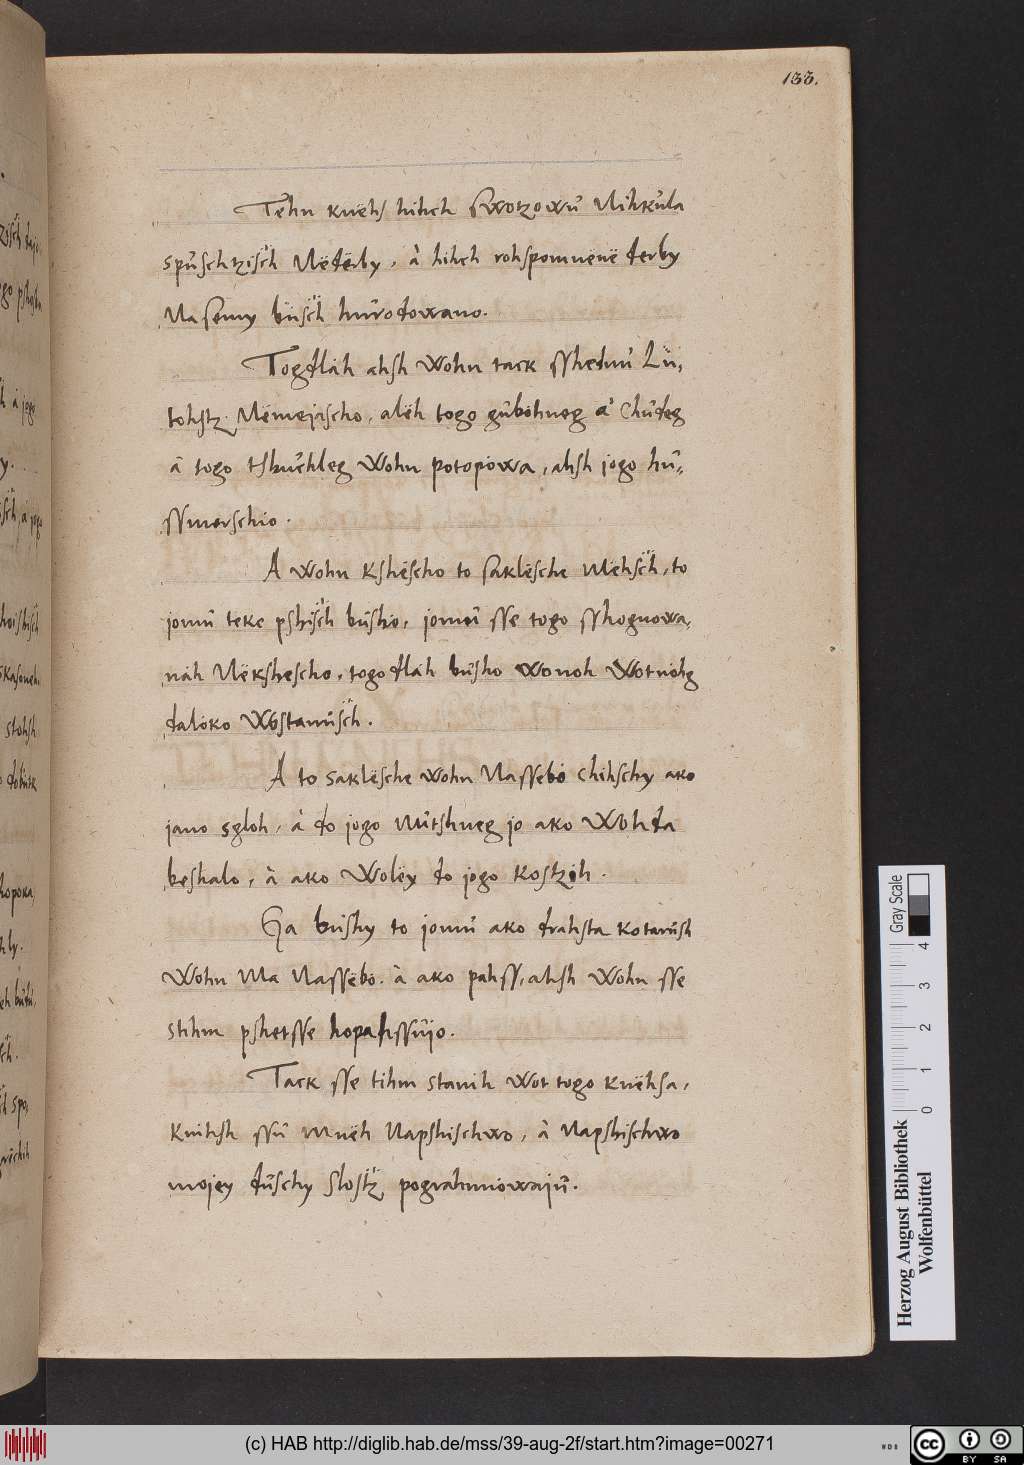 133.
Tehn knëhs hihch swotzowů Nihkůla
spůschtzisch Nëdërby, à hihch rohspomnënë derby
Na semy bůsch hůrodowano.
Togdlah ahsh wohn tack sshednů Lů,
tohstz Nëmejischo, alëh togo gůbohneg à Chůdeg
à togo tshůchleg wohn potopowa, ahsh jogo hů,
ssmerschio.
A wohn kshëscho to saklësche mëhsch, to
jomů teke pshisch bůsho, jomů sse togo sshognowa,
nah Nëkshescho, togodlah bůsho wonoh wotnohg
daloko wostanůsch.
A to saklësche wohn Nassebo chihschy ako
jano sgloh, à do jogo Nůtshneg jo ako wohda
beshalo, à ako wolëy do jogo kostzih.
Ga bůshy to jomů ako drahsta kotarůsh
wohn Ma Nassëbo, à ako pahss, ahsh wohn sse
stihm pshetsse hopahssůjo.
Tack sse tihm stanih wot togo knëhsa,
knihsh ssů mnëh Napshischwo, à Napshischwo
mojey důschy slostz pograhmiowajů.
Gray Scale
0 1 2 3 4
Herzog August Bibliothek
Wolfenbüttel
(c) HAB http://diglib.hab.de/mss/39-aug-2f/start.htm?image=00271
WDB
cc BY SA